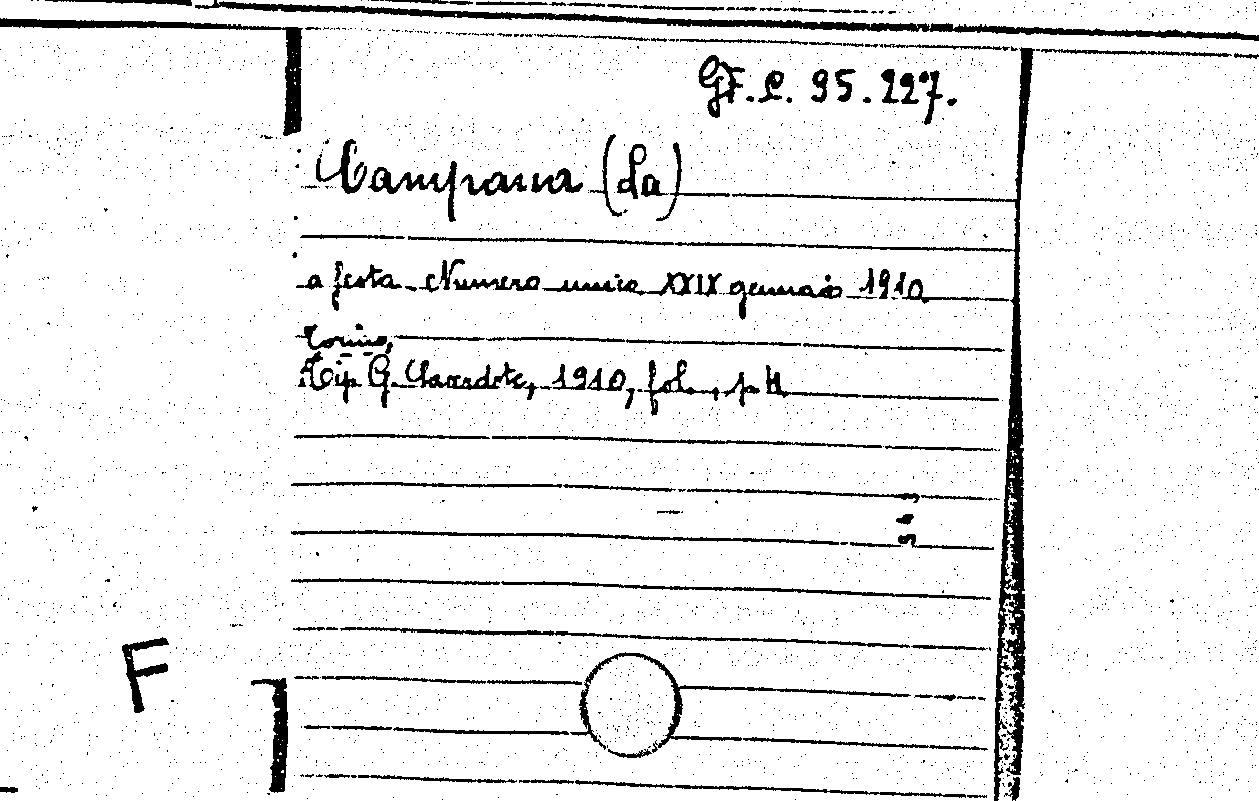 GF.C. 95.227.
Campana (La)
a festa Numero unico XXIX gennaio 1910
Torino,
Tip G. 1910, fol., p
F